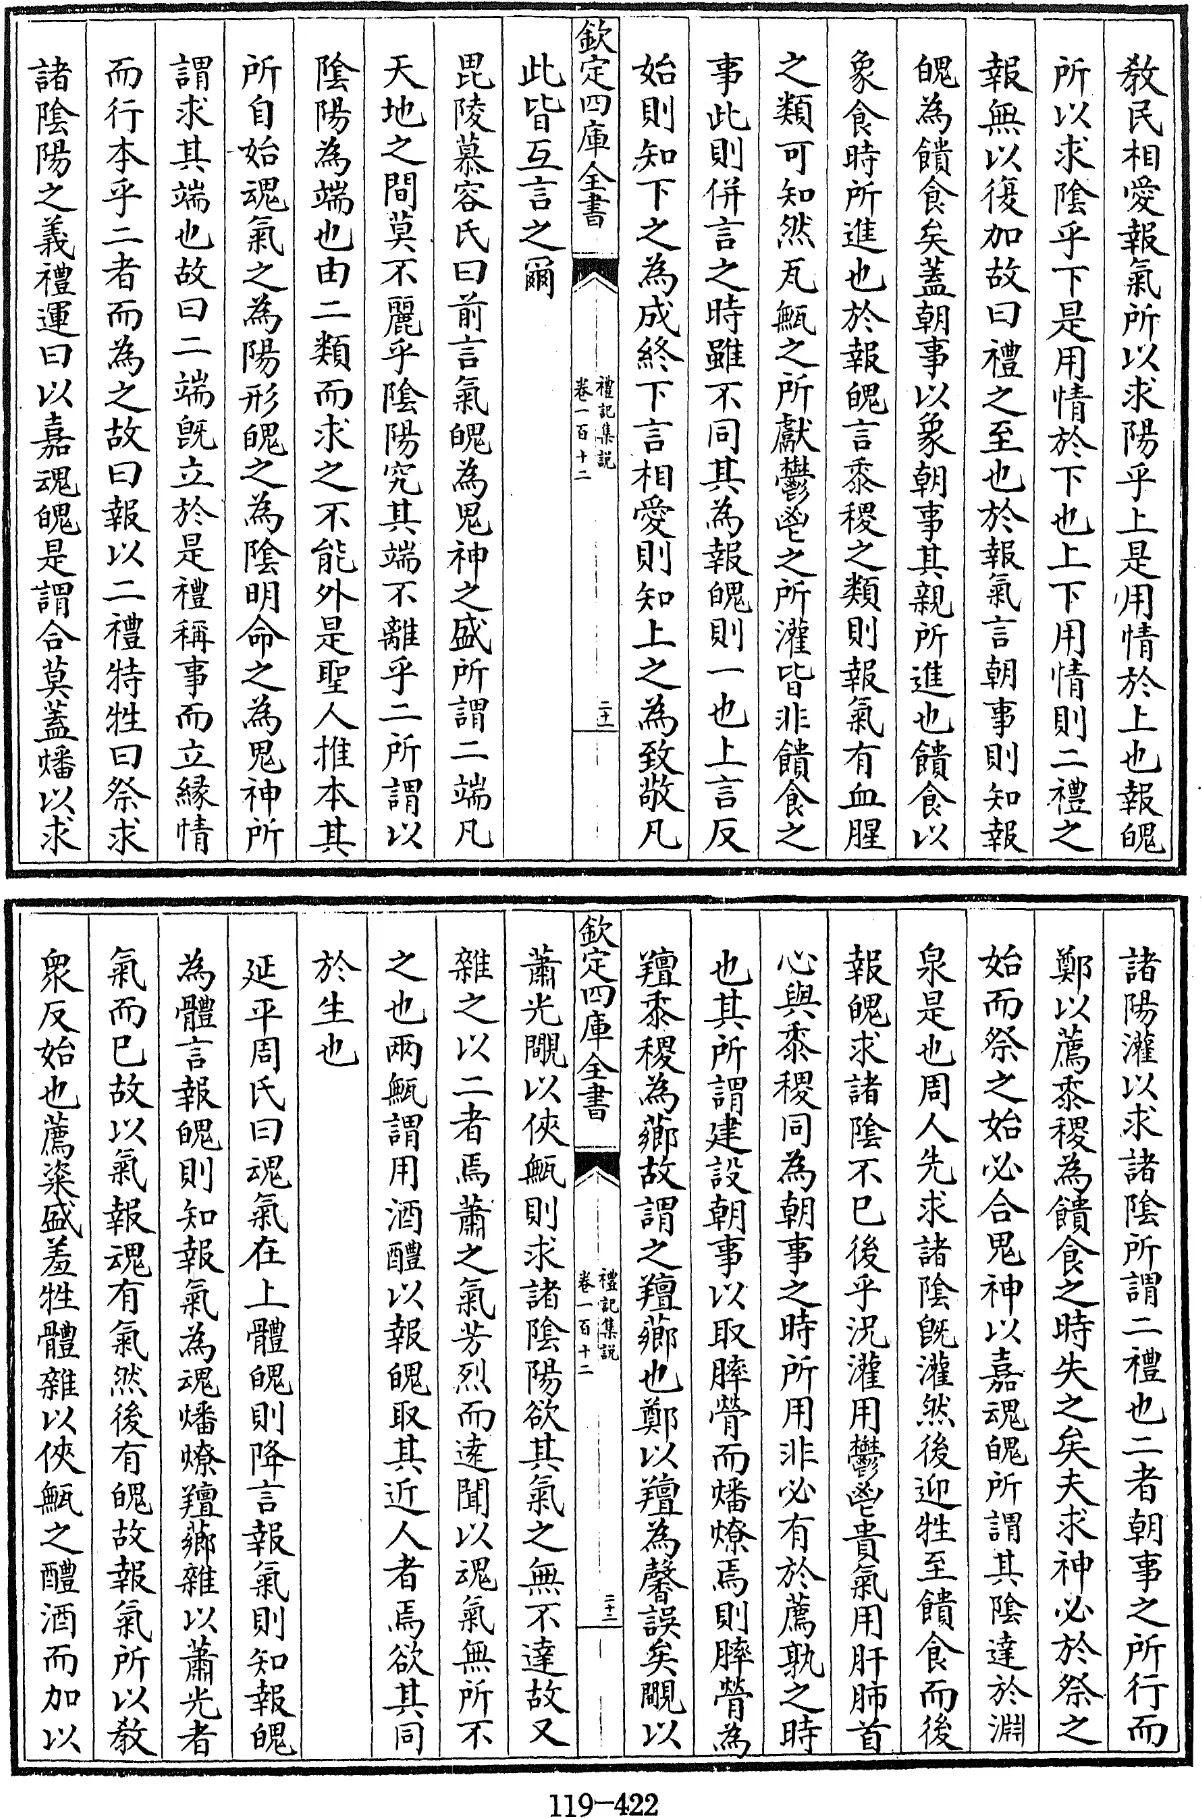 教民相愛報氣所以求陽乎上是用情於上也報魄
所以求陰乎下是用情於下也上下用情則二禮之
報無以復加故曰禮之至也於報氣言朝事則知報
魄為饋食矣蓋朝事以象朝事其親所進也饋食以
象食時所進也於報魄言黍稷之類則報氣有血腥
之類可知然瓦甒之所獻鬱鬯之所灌皆非饋食之
事此則併言之時雖不同其為報魄則一也上言反
始則知下之為成終下言相愛則知上之為致敬凡
欽定四庫全書
禮記集説
卷一百十二
二十一
此皆互言之爾
毘陵慕容氏曰前言氣魄為鬼神之盛所謂二端凡
天地之間莫不麗乎陰陽究其端不離乎二所謂以
陰陽為端也由二類而求之不能外是聖人推本其
所自始魂氣之為陽形魄之為陰明命之為鬼神所
謂求其端也故曰二端既立於是禮稱事而立緣情
而行本乎二者而為之故曰報以二禮特牲曰祭求
諸陰陽之義禮運曰以嘉魂魄是謂合莫蓋燔以求
諸陽灌以求諸陰所謂二禮也二者朝事之所行而
鄭以薦黍稷為饋食之時失之矣夫求神必於祭之
始而祭之始必合鬼神以嘉魂魄所謂其陰達於淵
泉是也周人先求諸陰既灌然後迎牲至饋食而後
報魄求諸陰不已後乎況灌用鬱鬯貴氣用肝肺首
心與黍稷同為朝事之時所用非必有於薦孰之時
也其所謂建設朝事以取膟膋而燔燎焉則膟膋為
羶黍稷為薌故謂之羶薌也鄭以羶為馨誤矣覸以
欽定四庫全書
禮記集説
卷一百十二
二十二
蕭光覸以俠甒則求諸陰陽欲其氣之無不達故又
雜之以二者焉蕭之氣芳烈而逺聞以魂氣無所不
之也兩甒謂用酒醴以報魄取其近人者焉欲其同
於生也
延平周氏曰魂氣在上體魄則降言報氣則知報魄
為體言報魄則知報氣為魂燔燎羶薌雜以蕭光者
氣而已故以氣報魂有氣然後有魄故報氣所以教
衆反始也薦粢盛羞牲體雜以俠甒之醴酒而加以
119-422